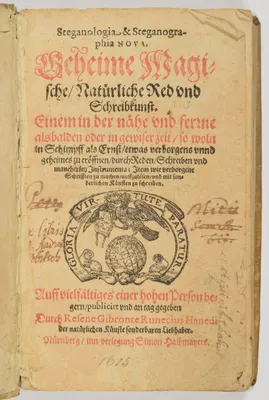 Steganologia & Steganogra-
phia NOVA.
Geheime Magi-
sche/ Natürliche Red vnd
Schreibkunst.
Einem in der nähe vnd ferrne
alsbalden oder in gewiser zeit/ so woln
in Schimpff als Ernst/ etwas verborgens vnnd
geheimes zu eröffnen/ durch Reden/ Schreiben vnd
mancherley Instrumenta: Item wie verborgene
Schrifften zu machen/ auffzulösen/ vnd mit son-
derlichen Künsten zu schreiben.
GLORIA VIRTUTE PARATUR
Auff vielfältiges einer hohen Person be-
gern/ publicirt vnd an tag gegeben
Durch Resene Gibronte Runeclus Hanedi
der natürlichen Künste sonderbaren Liebhaber.
Nürnberg/ inn verlegung Simon Halbmayers.
1615